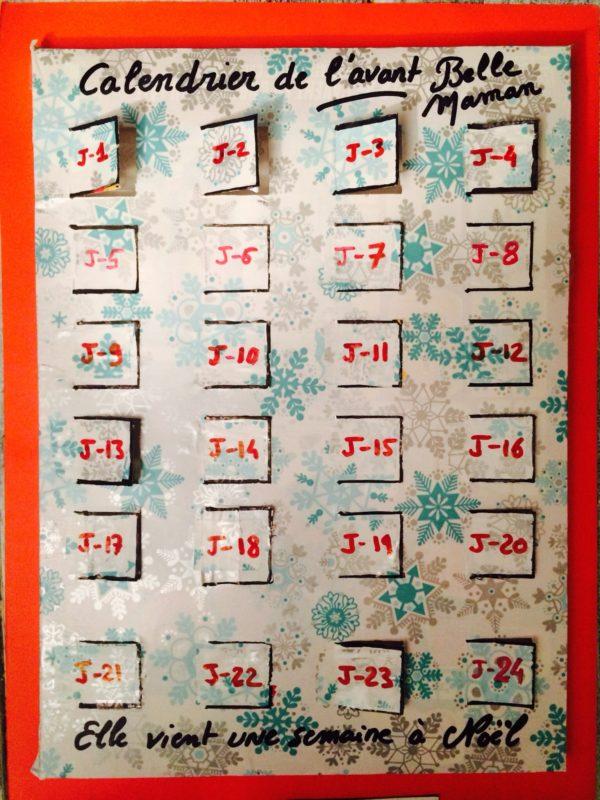 Calendrier de l'avant Belle
Maman
J-1 J-2 J-3 J-4
J-5 J-6 J-7 J-8
J-9 J-10 J-11 J-12
J-13 J-14 J-15 J-16
J-17 J-18 J-19 J-20
J-21 J-22 J-23 J-24
Elle vient une semaine à Noël